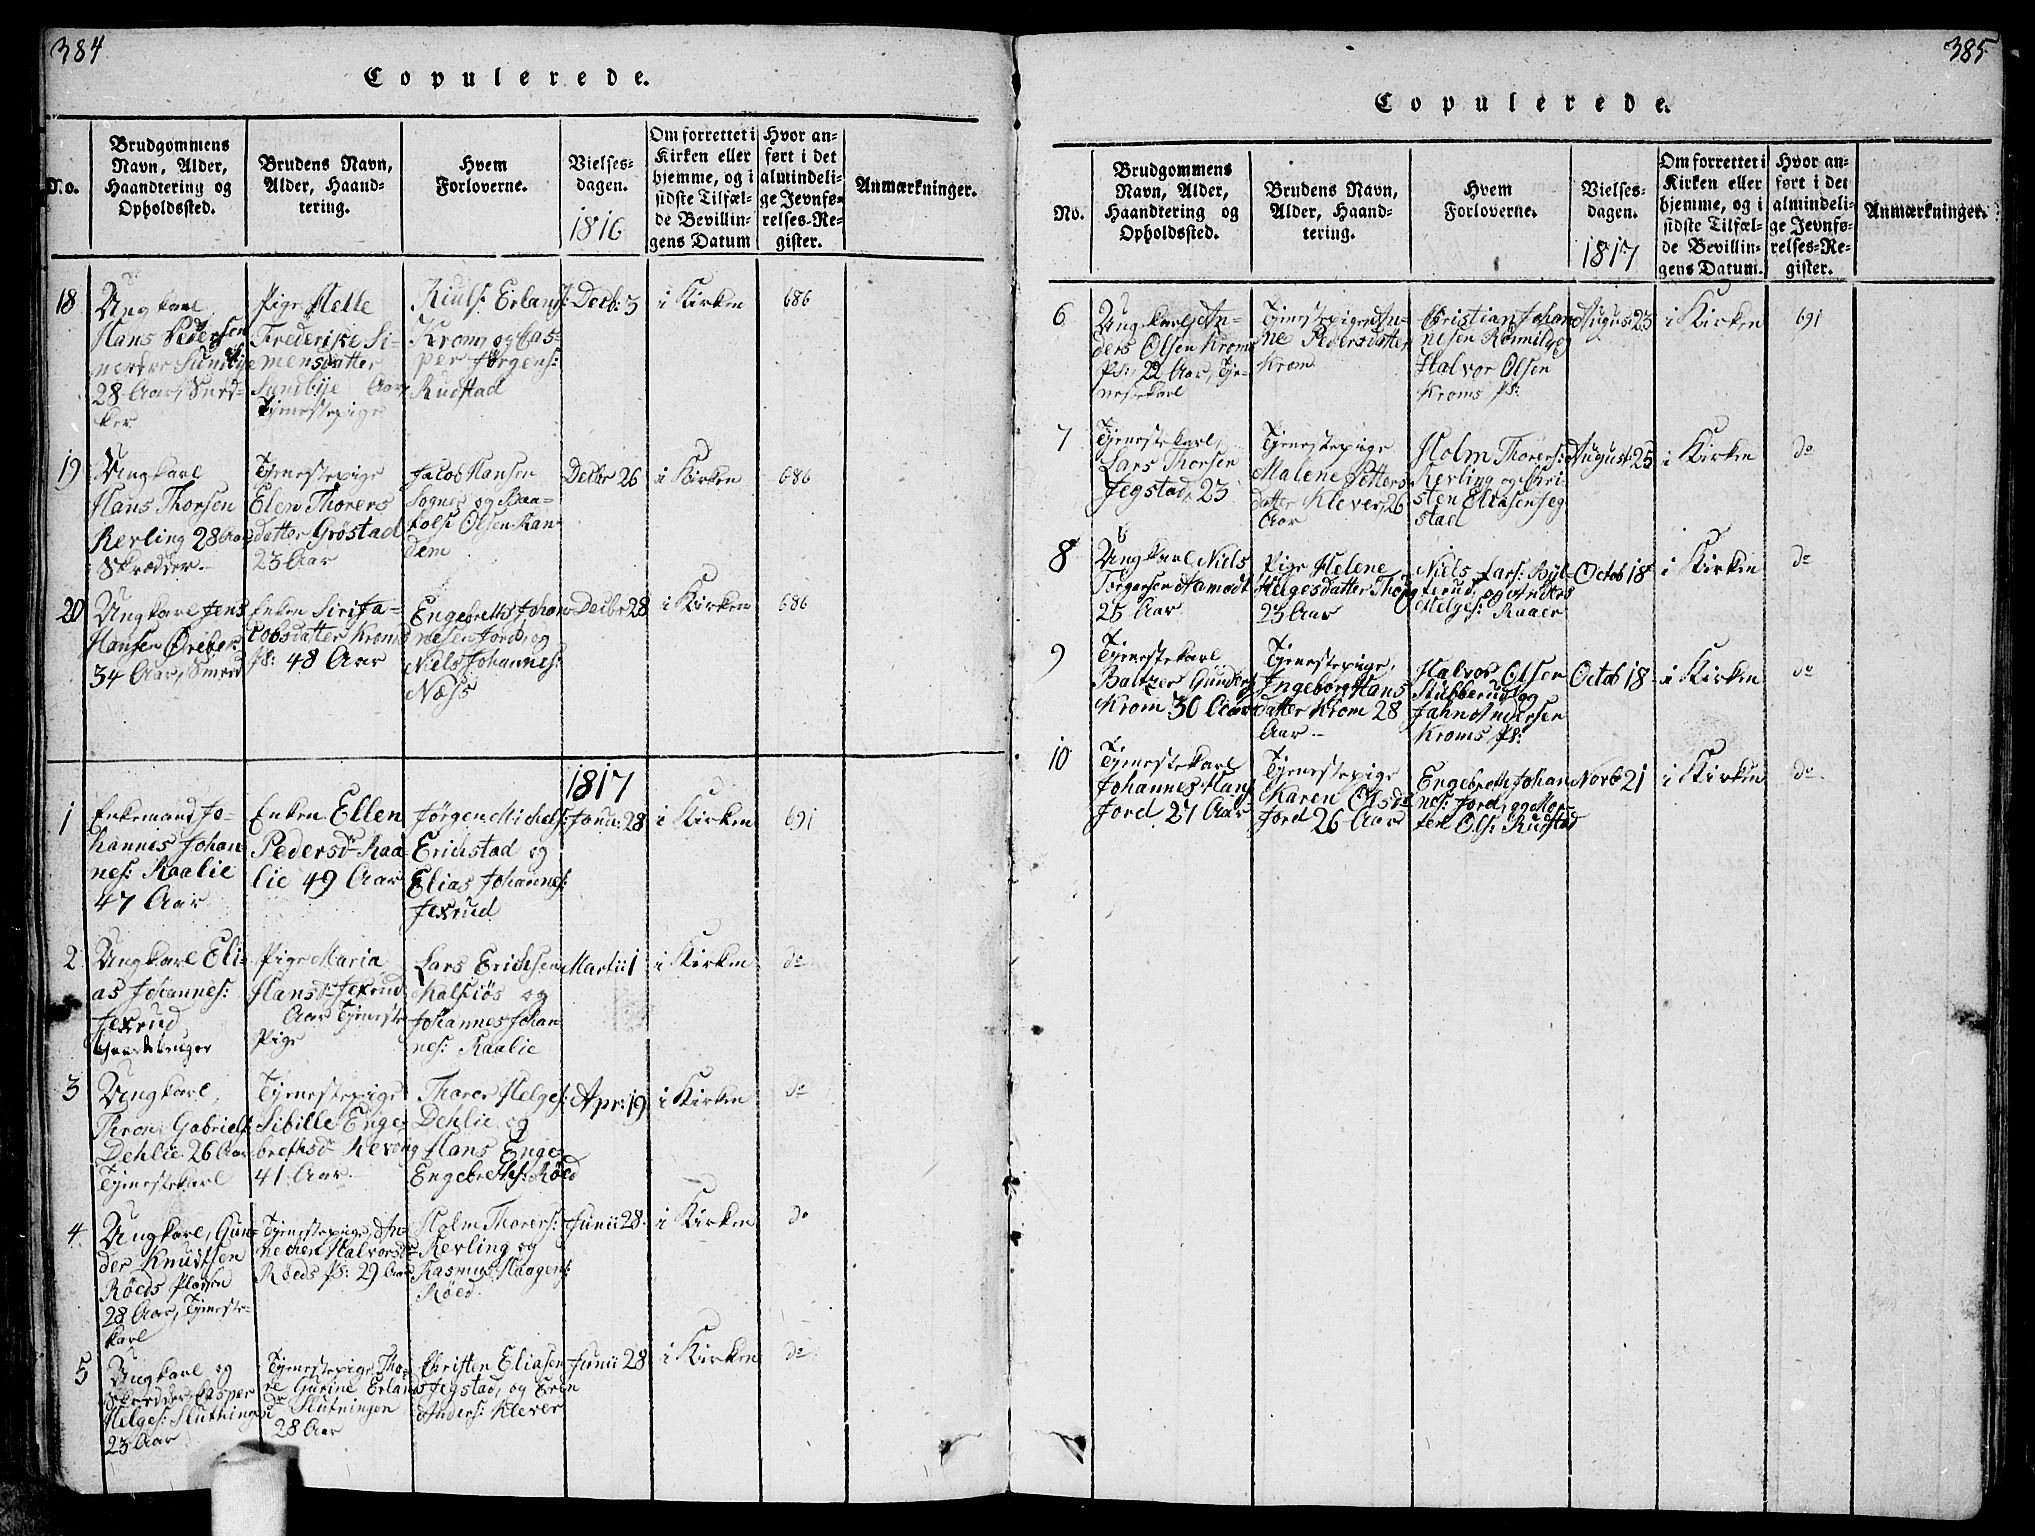 384
Copulerede.
No.
Brudgommens
Navn, Alder,
Haandtering og
Opholdssted.
Brudens Navn,
Alder, Haand-
tering.
Hvem
Forloverne.
Vielses-
dagen.
1816
Om forrettet i
Kirken eller
hjemme, og i
sidste Tilfæl-
de Bevillin-
gens Datum
Hvor an-
ført i det
almindeli-
ge Jevnfø-
relses-Re-
gister.
Anmærkninger.
18
Ungkarl
Hans Pedersen
28 Aar, Sned-
ker
Pige Helle
Frederike Si-
mensdatter
Sundbye Aar
Tjenestepige
Kuuls: Erlans:
Krom og Cas-
per Jørgens:
Rudstad
Decb: 3
i Kirken
686
19
Ungkarl
Hans Thorsen
Kerling 28 Aar
Skrædder
Tjenestepige
Elen Thorers
datter Grøstad
23 Aar
Jacob Hansen
Sogner og Baa-
Olsen Ran
dem
Decbr 26
i Kirken
686
20
Ungkarl Jens
Hansen Øreber:
34 Aar, Smed
Enken Siri Ja-
cobsdatter Kroms
Ps: 48 Aar
Engebreth Johan-
nesen Jord og
Niels Johannes:
Næss
Decbr 28
i Kirken
686
1817
1
Enkemand Jo-
hannes Johan
nes: Raalie
47 Aar
Enken Ellen
Pedersdr Raa
lie 49 Aar
Jørgen Michels:
Erichstad og
Elias Johannes:
Jexrud
Janu: 28
i Kirken
691
2
Ungkarl Eli-
as Johannes:
Jexrud
Gaardbruger
Pige Maria
Hansdr Jexrud
Aar Tjeneste
Pige
Lars Erichsen
Kalsiøs og
Johannes Johan
nes: Raalie
Martii 1
i Kirken
do
3
Ungkarl,
Gabriels:
Dehlie 26 Aar
Tjenestekarl
Tjenestepige
Sibille Enge
brethsdr Revong
41 Aar
Thorer Helges:
Dehlie og
Hans Enge
Engebreths: Røed
Apr: 19
i Kirken
do
4
Ungkarl, Gun-
der Knudtsen
Røeds Pladsen
28 Aar, Tjeneste-
karl
Tjenestepige An-
nechen Halvorsdr
Røeds Ps: 29 Aar
Holm Thorers:
Revling og
Rasmus Haagens:
Røed
Junii 28
i Kirken
do
5
Ungkarl og
Skrædder Casper
Helges: Sluthningen
23 Aar
Tjenestepige Tho-
re Gurine Erlans
dr Slutningen
28 Aar
Christen Eliasen
Jegstad, og Eren
Anders: Klever
Junii 28
i Kirken
do
385
Copulerede.
No.
Brudgommens
Navn, Alder,
Haandtering og
Opholdssted.
Brudens Navn,
Alder, Haand-
tering.
Hvem
Forloverne.
Vielses-
dagen.
1817
Om forrettet i
Kirken eller
hjemme, og i
sidste Tilfæl-
de Bevillin-
gens Datum.
Hvor an-
ført i det
almindeli-
ge Jevnfø-
relses-Re-
gister.
Anmærkninger.
6
Ungkarl, An-
ders Olsen Kroms
Ps: 22 Aar, Tje-
nestekarl
Tjenestepige An-
ne Pedersdatter
Krom
Christian Johan
nesen Romild og
Halvor Olsen
Kroms Ps:
August 23
i Kirken
691
7
Tjenestekarl,
Lars Thorsen
Jegstad, 23
Tjenestepige
Malene Petters
datter Klever, 26
Aar
Holm Thorers:
Kerling og Chri
sten Eliasen Jeg
stad
August: 25
i Kirken
do
8
Ungkarl Niels
Torgersen Aamodt
25 Aar
Pige Helene
Helgesdatter Thong
23 Aar
Niels Lars: Byl-
terud, og Anders
Helges: Raaer
Octob 18
i Kirken
do
9
Tjenestekarl
Baltzer Gunders:
Krom 30 Aar
Tjenestepige,
Ingeborg Hans
datter Krom 28
Aar
Halvor Olsen
Stubberud og
Jahn Andersen
Kroms Ps:
Octob 18
i Kirken
do
10
Tjenestekarl
Johannes Hans:
Jord 27 Aar
Tjenestepige
Karen Olsdr
Jord 26 Aar
Engebreth Johan
nes: Jord, og Mor-
ten Ols: Rudstad
Novb 21
i Kirken
do